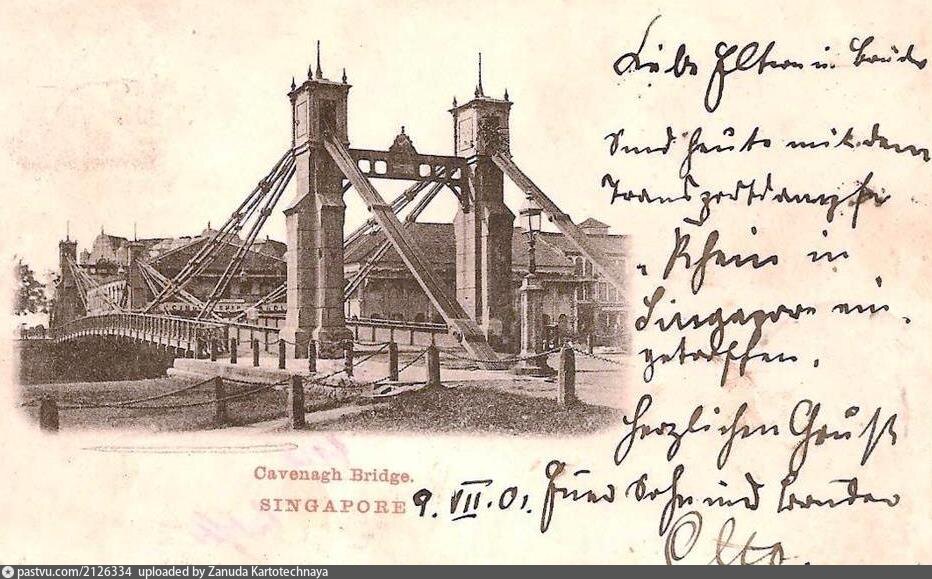 Liebe Eltern u. Bruder
Sind heute mit dem
Transportdampfer
"Rhein in
Singapore ein-
getroffen.
Herzlichen Gruß
Euer Sohn und Bruder
Otto.
9. VII. 01.
Cavenagh Bridge.
SINGAPORE
pastvu.com/2126334 uploaded by Zanuda Kartotechnaya